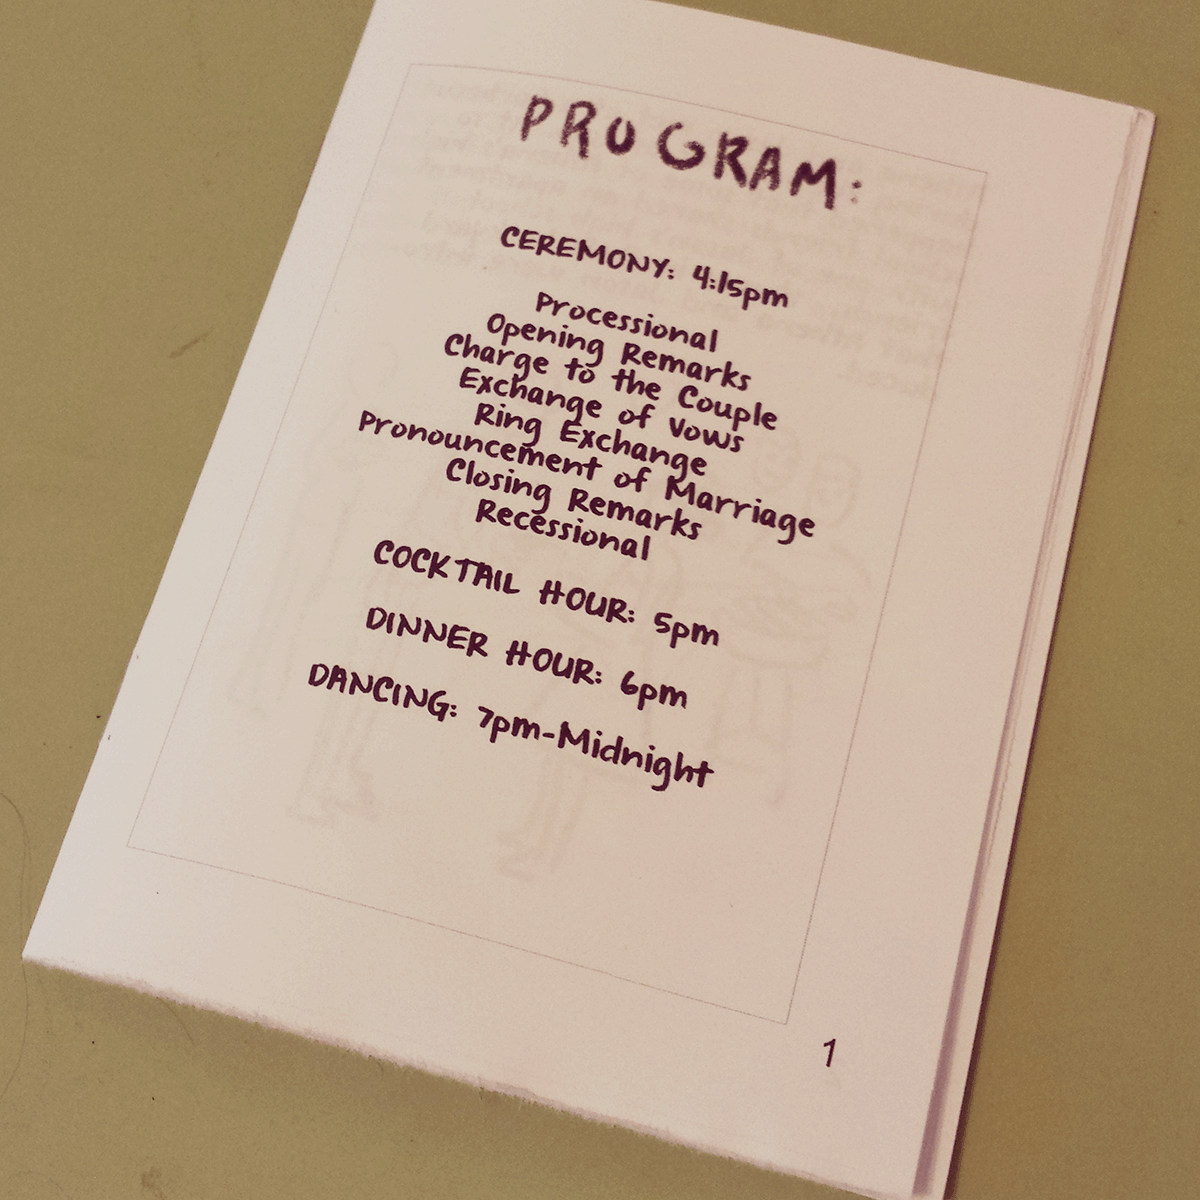 PROGRAM:
CEREMONY: 4:15pm
Processional
Opening Remarks
Charge to the Couple
Exchange of Vows
Ring Exchange
Pronouncement of Marriage
Closing Remarks
Recessional
COCKTAIL HOUR: 5pm
DINNER HOUR: 6pm
DANCING: 7pm-Midnight
1